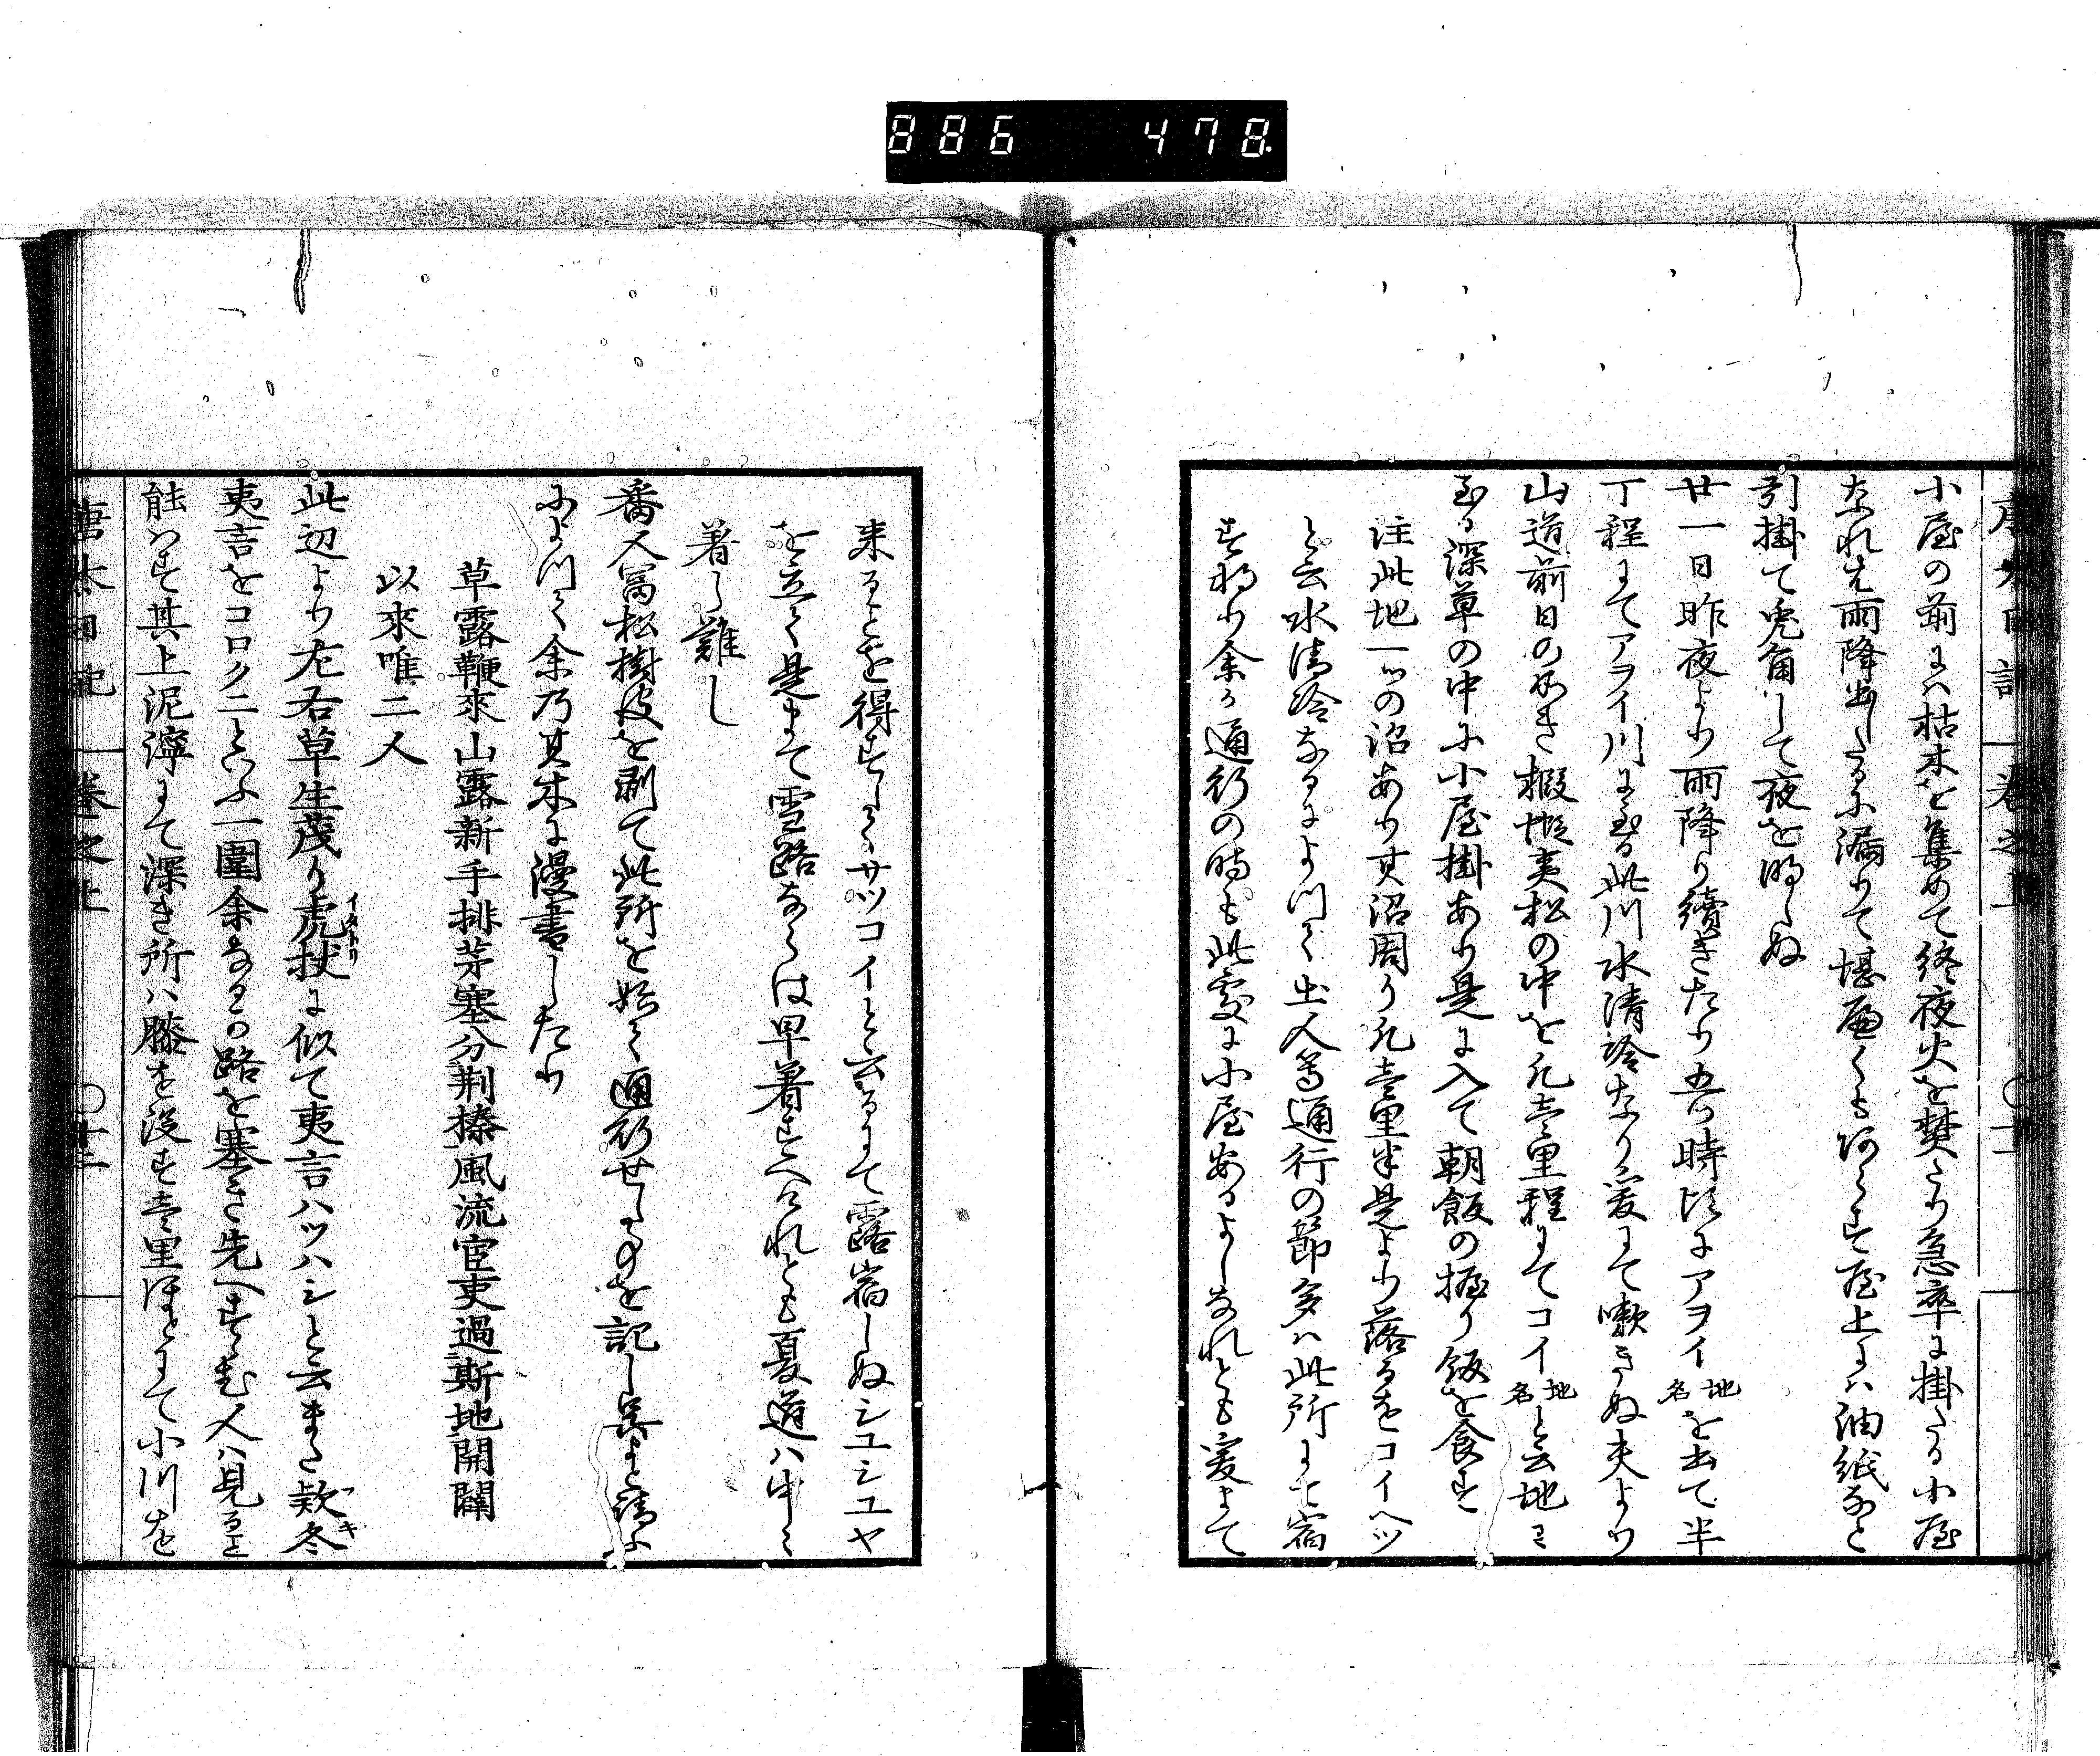 886 478
小屋の前にハ枯木を集めて終夜火を焚たり急卒に掛たる小屋
なれは雨降出したるに漏りて堪兼くも阿らす屋上にハ油紙なと
引掛て兎角して夜を明しぬ
廿一日昨夜より雨降り續きたり五ツ時頃にアヲイ地名を出て半
丁程にてアヲイ川に至る此川水清冷なり爰にて嗽きぬ夫より
山道前日の如き椴樅夷松の中を凡壱里程にてコイ地名と云地に
至る深草の中に小屋掛あり是に入て朝飯の握り飯を食す
注此地一ツの沼あり其沼周り凡壱里半是より落るをコイヘツ
と云水清冷なるによつて土人等通行の節多ハ此所にて宿
す我か余か通行の時も此處に小屋あるよしなれとも爰まて
来ることを得すしてサツコイと云るにて露宿しぬシユシユヤ
を立て是まて雪路ならは早着すへけれとも夏道ハ中々
着し難し
番人冨松樹皮を剥て此所を始て通行せしものを記し呉よと請ふ
によつて余乃其木に漫書したり
草露鞭來山露新手排茅塞分荆榛風流官吏過斯地開闢
以來唯二人
此辺より左右草生茂り虎扙イタトリに似て夷言ハツハシと云また欵冬フキ
夷言をコロクニといふ一圍余なるの路を塞き先へすゝむ人ハ見ること
能はす其上泥濘にて深き所ハ膝を没す壱里ほとにて小川を
唐太日記 巻之上 〇十二